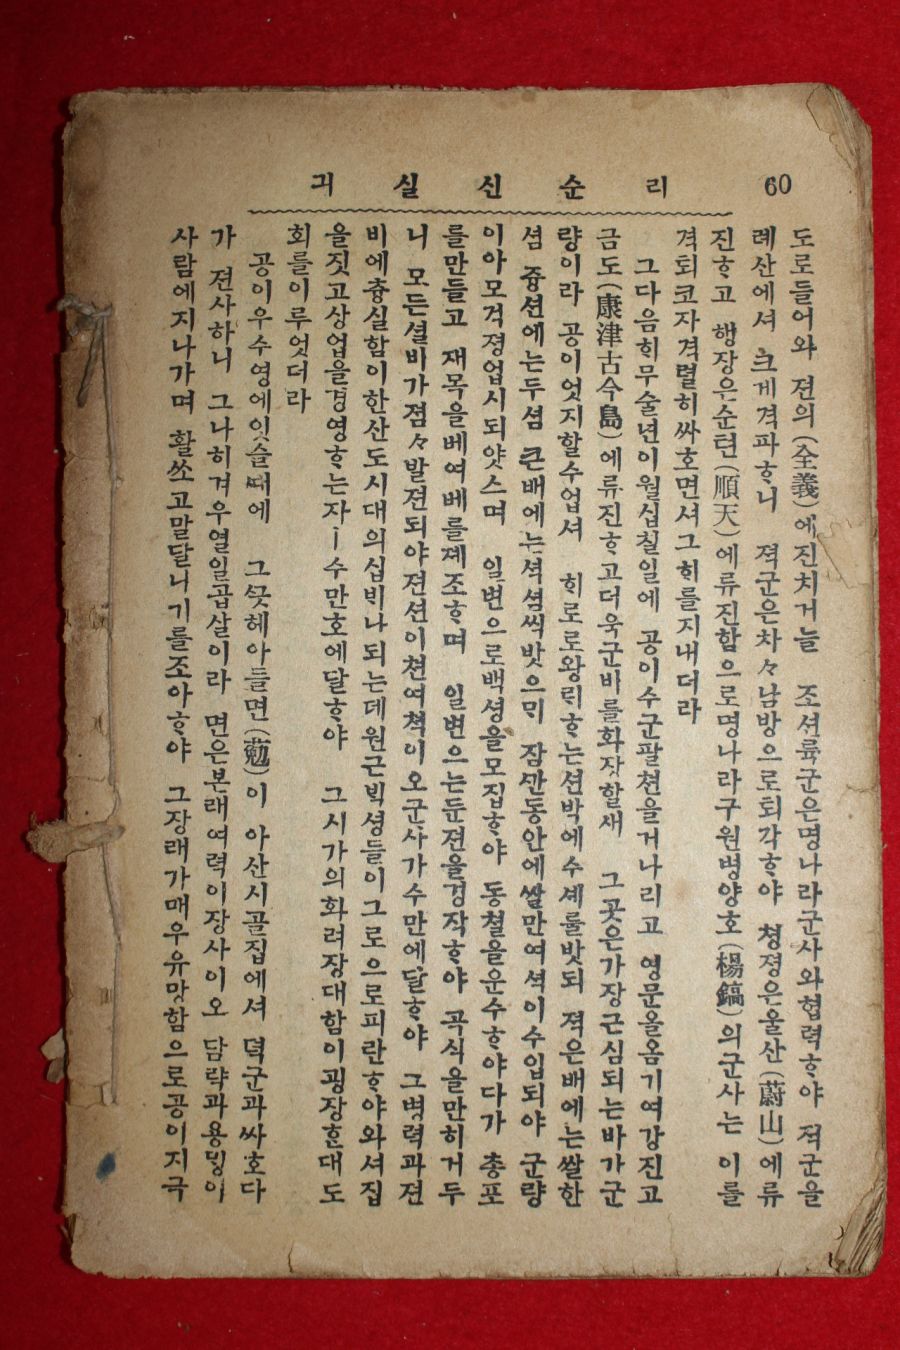 60
리순신실긔
도로들어와 젼의(全義)에진치거늘 조션륙군은명나라군사와협력ᄒᆞ야 젹군을
례산에셔 크게격파ᄒᆞ니 젹군은차々남방으로퇴각ᄒᆞ야 쳥졍은울산(蔚山)에류
진ᄒᆞ고 행장은순텬(順天)에류진함으로명나라구원병양호(楊鎬)의군사는 이를
격퇴코자격렬히싸호면셔그ᄒᆡ를지내더라
그다음ᄒᆡ무술년이월십칠일에 공이수군팔쳔을거나리고 영문을옴기여강진고
금도(康津古今島)에류진ᄒᆞ고더욱군비를확장할새 그곳은가장근심되는바가군
량이라 공이엇지할수업셔 ᄒᆡ로로왕ᄅᆡᄒᆞ는션박에수셰를밧되 젹은배에는쌀한
셤 즁션에는두셤 큰배에는셕셤씩밧으ᄆᆡ 잠깐동안에쌀만여셕이수입되야 군량
이아모걱졍업시되얏스며 일변으로백셩을모집ᄒᆞ야 동쳘을운수ᄒᆞ야다가 총포
를만들고 재목을베여베를졔조ᄒᆞ며 일변으는둔젼을경작ᄒᆞ야 곡식을만히거두
니 모든셜비가졈々발젼되야젼션이쳔여쳑이오군사가수만에달ᄒᆞ야 그병력과젼
비에츙실함이한산도시대의십ᄇᆡ나되는데원근ᄇᆡᆨ셩들이그로으로피란ᄒᆞ야와셔집
을짓고상업을경영ᄒᆞ는자ㅣ수만호에달ᄒᆞ야 그시가의화려장대함이굉장한대도
회를이루엇더라
공이우수영에잇슬ᄯᅢ에 그ᄭᅳᆺ헤아들면(葂)이 아산시골집에셔 뎍군과싸호다
가 젼사하니 그나히겨우열일곱살이라 면은본래여력이장사이오 담략과용ᄆᆡᆼ이
사람에지나가며 활쏘고말달니기를조아ᄒᆞ야 그장래가매우유망함으로공이지극